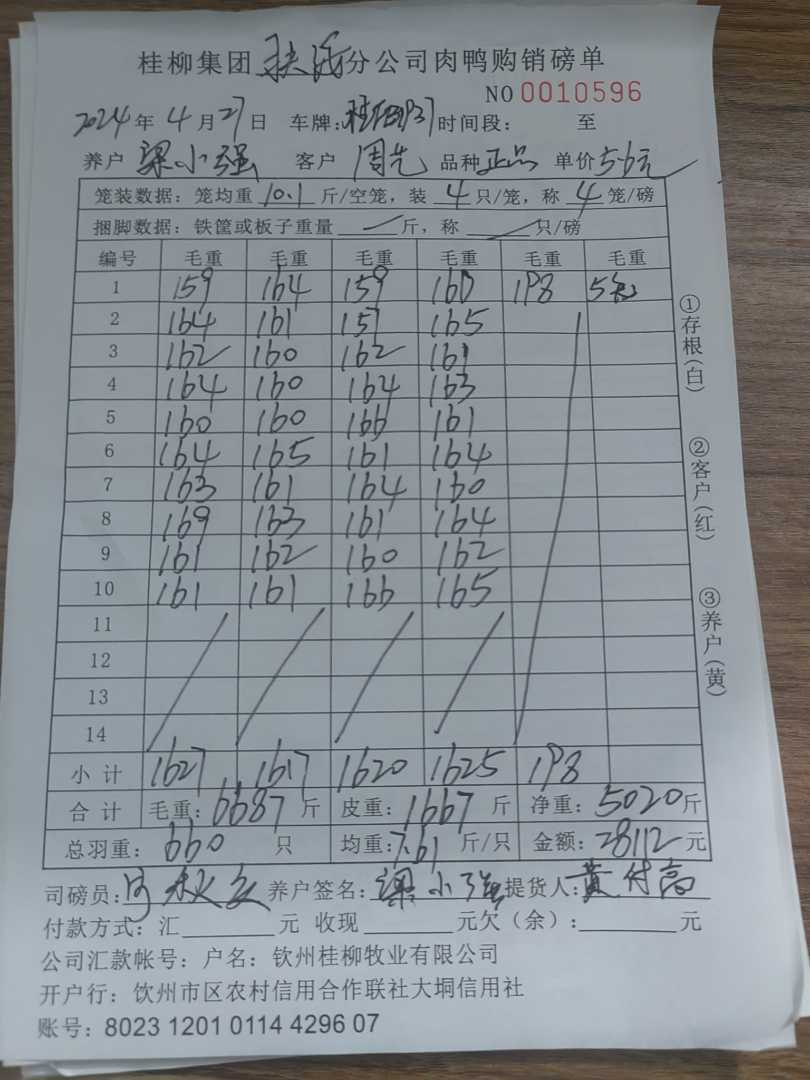 桂柳集团扶绥分公司肉鸭购销磅单
NO 0010596
2024年4月27日 车牌: 时间段: 至
养户 梁小强 客户 周先 品种 正品 单价 5.6元
笼装数据:笼均重 10.1 斤/空笼,装 4 只/笼,称 4 笼/磅
捆脚数据:铁筐或板子重量 斤,称 只/磅
编号 毛重 毛重 毛重 毛重 毛重 毛重
1 159 164 159 160 198 5笼
2 164 161 157 165
3 162 160 162 161
4 164 160 164 163
5 160 160 166 161
6 164 165 161 164
7 163 161 164 160
8 169 163 161 164
9 161 162 160 162
10 161 161 166 165
11
12
13
14
小计 1627 1617 1620 1625 198
合计 毛重:6687斤 皮重:1667斤 净重:5020斤
总羽重:660 只 均重:7.61斤/只 金额:28112元
司磅员: 养户签名:梁小强 提货人:黄付高
付款方式:汇 元 收现 元欠(余): 元
公司汇款帐号:户名:钦州桂柳牧业有限公司
开户行:钦州市区农村信用合作联社大垌信用社
账号:8023 1201 0114 4296 07
①存根(白)
②客户(红)
③养户(黄)